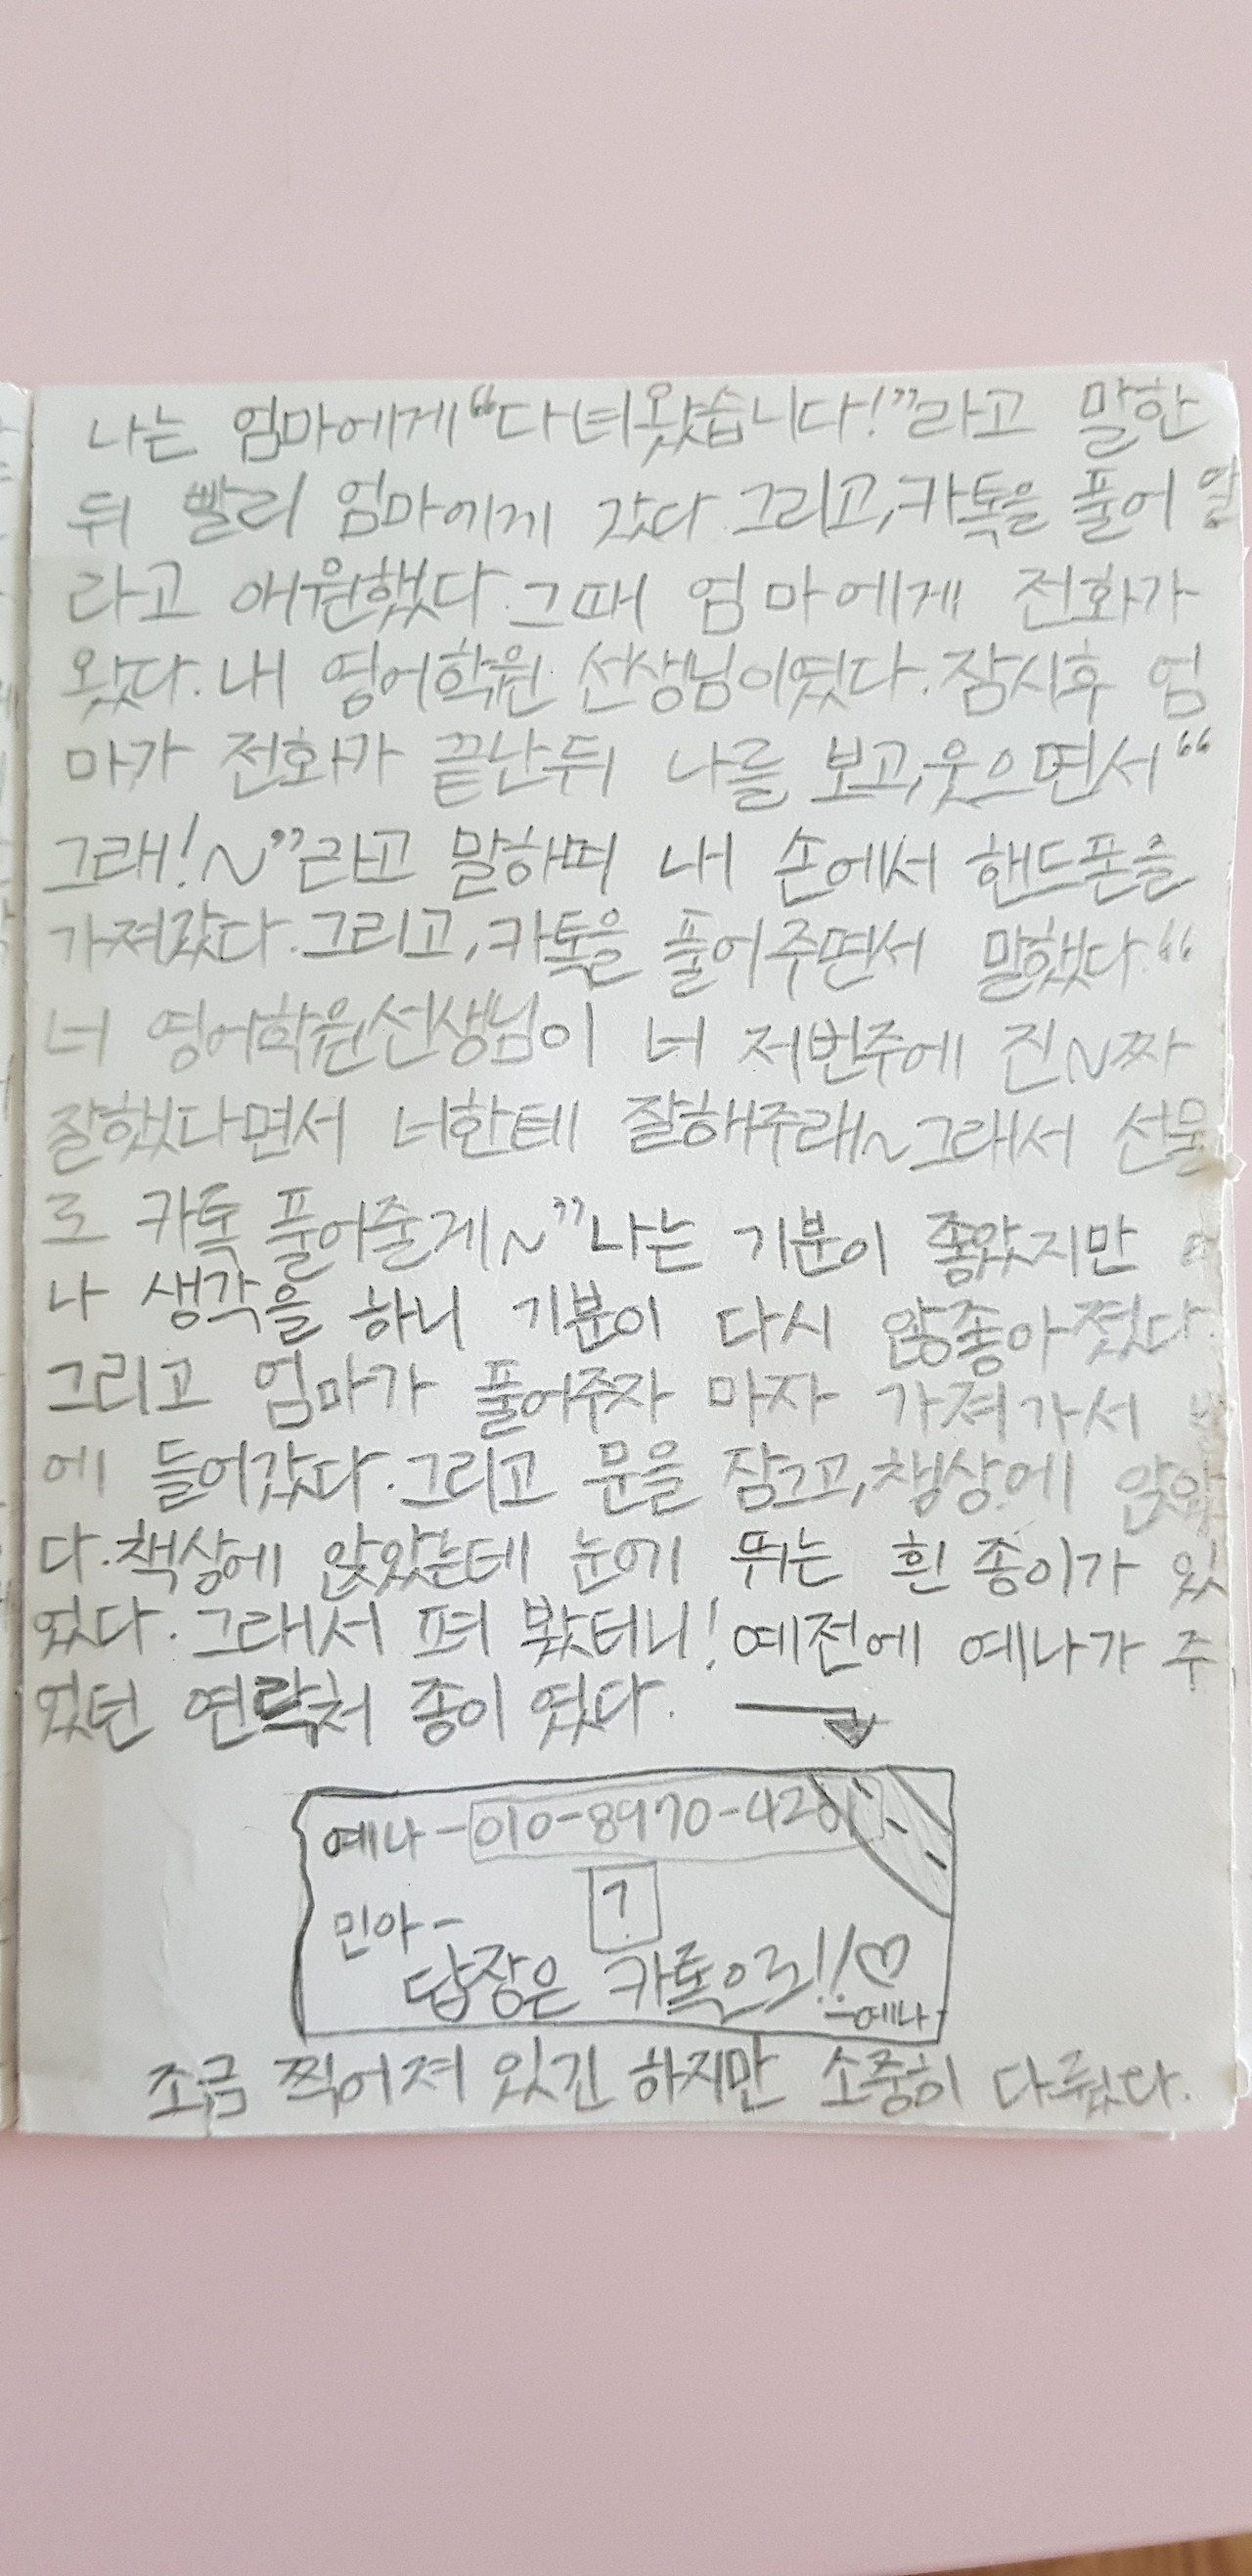 나는 엄마에게“다녀왔습니다!”라고 말한
뒤 빨리 엄마에게 갔다.그리고,카톡을 풀어
라고 애원했다.그때 엄마에게 전화가
왔다.내 영어학원 선생님이였다.잠시후 엄
마가 전화가 끝난뒤 나를 보고,웃으면서“
그래!~”라고 말하며 내 손에서 핸드폰을
가져갔다.그리고,카톡을 풀어주면서 말했다.“
너 영어학원선생님이 너 저번주에 진~짜
잘했다면서 너한테 잘해주래~그래서 선물
로 카톡 풀어줄게~”나는 기분이 좋았지만
나 생각을 하니 기분이 다시 않좋아졌다.
그리고 엄마가 풀어주자 마자 가져가서
에 들어갔다.그리고 문을 잠그고,책상에 앉았
다.책상에 앉았는데 눈에 뛰는 흰 종이가 있
었다.그래서 펴 봤더니!예전에 예나가 주
었던 연락처 종이 였다.
예나-010-8970-42
?
민아-
답장은 카톡으로!!♡
-예나-
조금 찍어져 있긴 하지만 소중히 다뤘다.